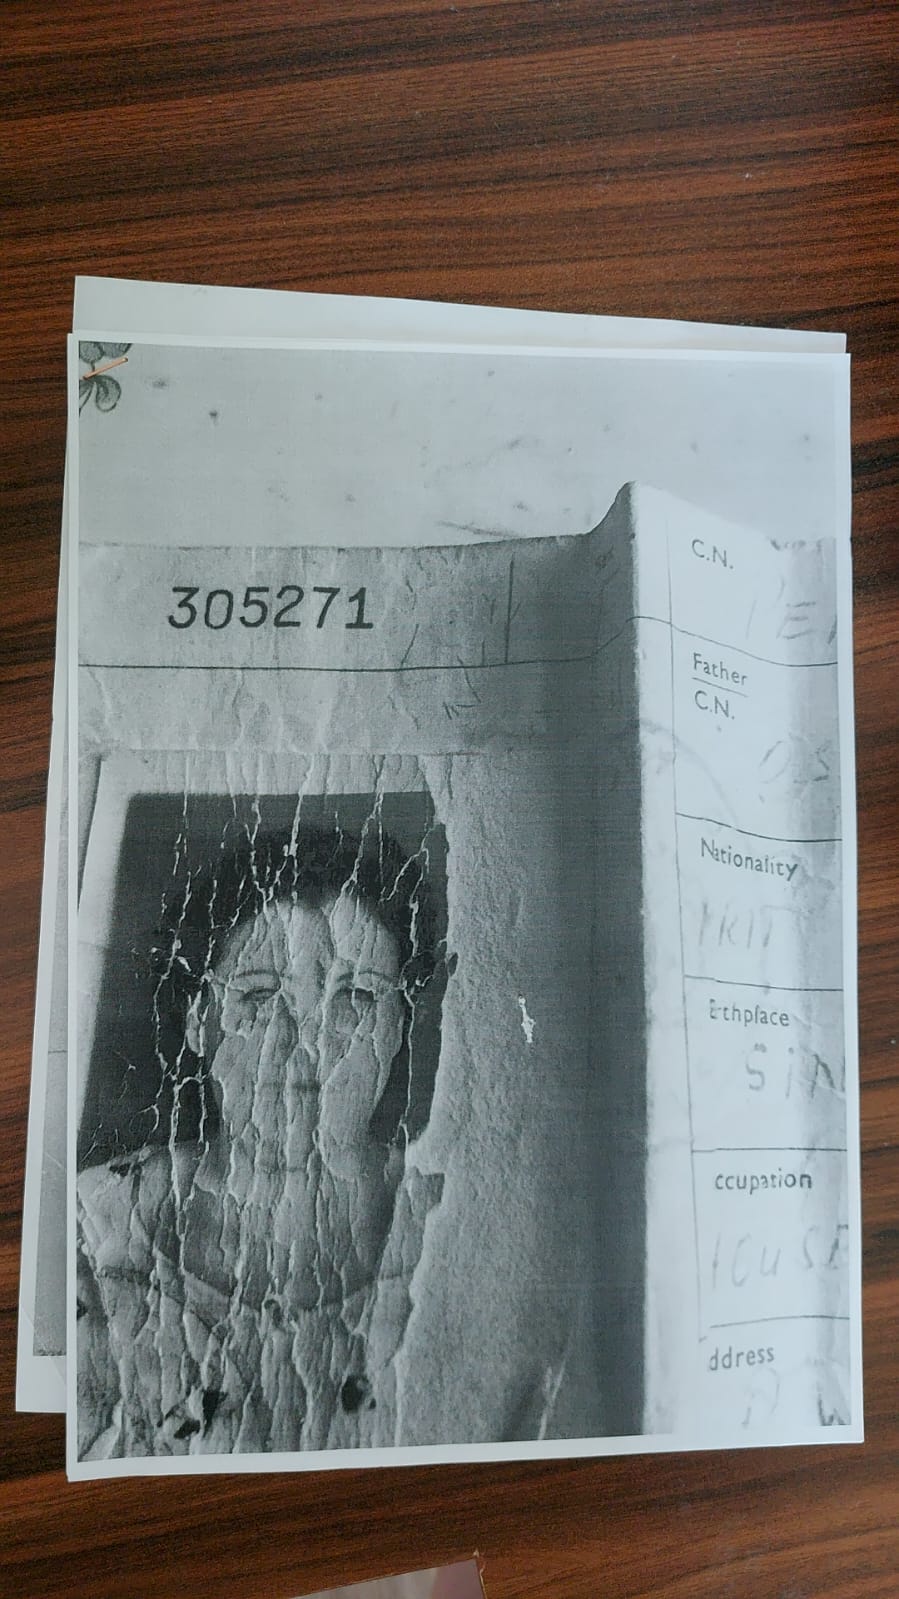 305271
C.N.
PE
Father
C.N.
Nationality
RIT
thplace
SIN
ccupation
OUSE
ddress